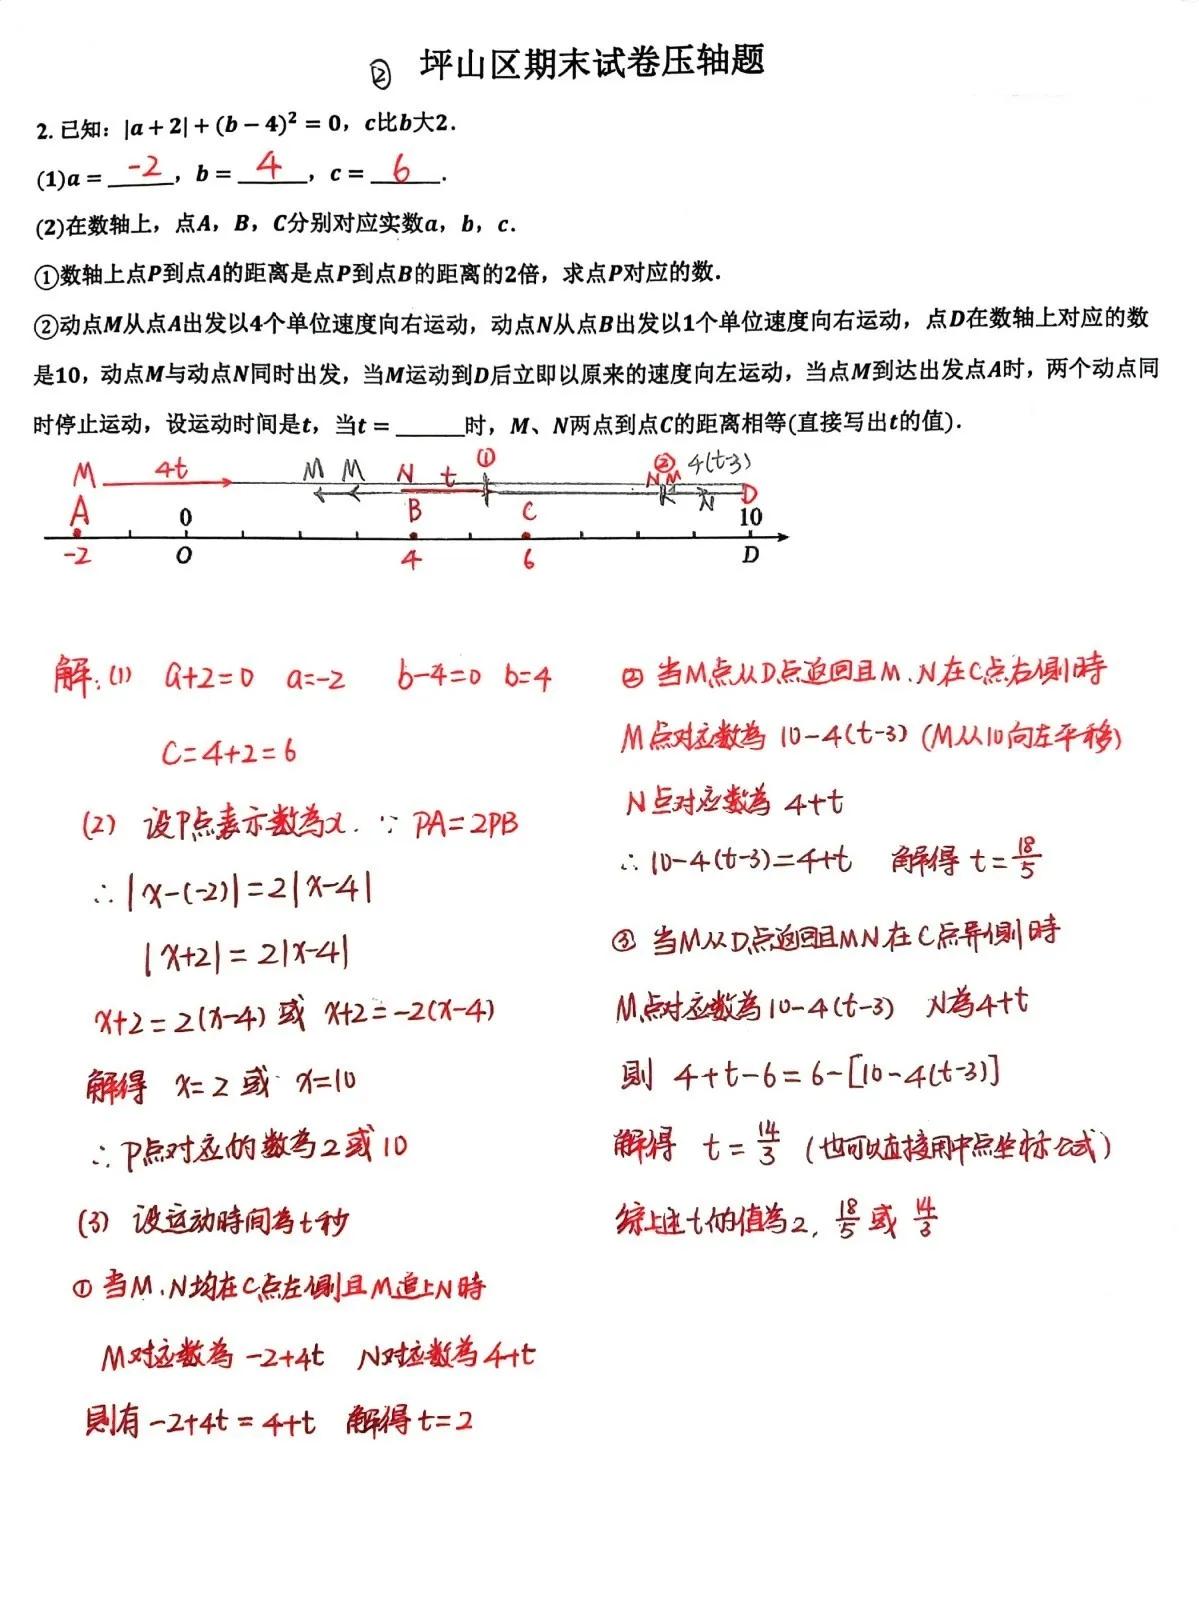 ② 坪山区期末试卷压轴题
2. 已知：|a + 2| + (b − 4)² = 0，c比b大2．
(1)a = -2，b = 4，c = 6．
(2)在数轴上，点A，B，C分别对应实数a，b，c．
①数轴上点P到点A的距离是点P到点B的距离的2倍，求点P对应的数．
②动点M从点A出发以4个单位速度向右运动，动点N从点B出发以1个单位速度向右运动，点D在数轴上对应的数
是10，动点M与动点N同时出发，当M运动到D后立即以原来的速度向左运动，当点M到达出发点A时，两个动点同
时停止运动，设运动时间是t，当t = ______时，M、N两点到点C的距离相等(直接写出t的值)．
M 4t M M N t ① ② N M 4(t-3)
N D
A 0 B C 10
-2 O 4 6 D
解：(1) a+2=0 a=-2 b-4=0 b=4
C=4+2=6
(2) 设P点表示数為x. ∵ PA=2PB
∴ |x-(-2)|=2|x-4|
|x+2|=2|x-4|
x+2=2(x-4) 或 x+2=-2(x-4)
解得 x=2 或 x=10
∴ P点对应的数為2或10
(3) 设运动時间為t秒
① 当M、N均在C点左側且M追上N時
M对应数為 -2+4t N对应数為4+t
則有 -2+4t=4+t 解得 t=2
② 当M点从D点返回且M、N在C点右側時
M点对应数為 10-4(t-3) (M从10向左平移)
N点对应数為 4+t
∴ 10-4(t-3)=4+t 解得 t=18/5
③ 当M从D点返回且MN在C点异側時
M点对应数為10-4(t-3) N為4+t
則 4+t-6=6-[10-4(t-3)]
解得 t=14/3 (也可以直接用中点坐标公式)
综上述t的值為2, 18/5 或 14/3